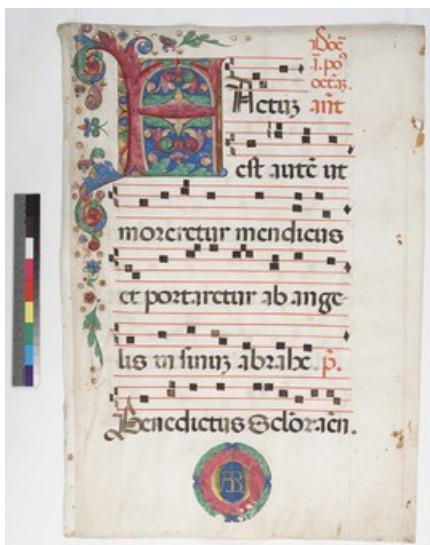 Dōc̄
.i. po⁹
octaȝ.
FActuȝ añt
est autē ut
moreretur mendicus
et portaretur ab ange-
lis in sinuȝ abrahe p̄.
Benedictus Sclōr.aēn.